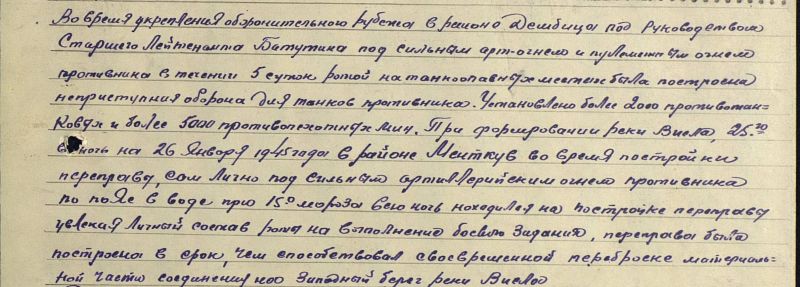 Во время укрепления оборонительного рубежа в районе Дембица под руководством
Старшего Лейтенанта Батутина под сильным арт-огнем и пулеметным огнем
противника в течении 5 суток ротой на танкоопасных местах была построена
неприступная оборона для танков противника. Установлено более 2000 противотан=
ковых и более 5000 противопехотных мин. При форсировании реки Висла, 25.
в ночь на 26 Января 1945 года в районе Менткув во время постройки
переправы, сам лично под сильным артиллерийским огнем противника
по пояс в воде при 15° мороза всю ночь находился на постройке переправы
увлекая личный состав роты на выполнение боевого задания, переправа была
построена в срок, чем способствовал своевременной переброске материаль=
ной части соединения на Западный берег реки Висла